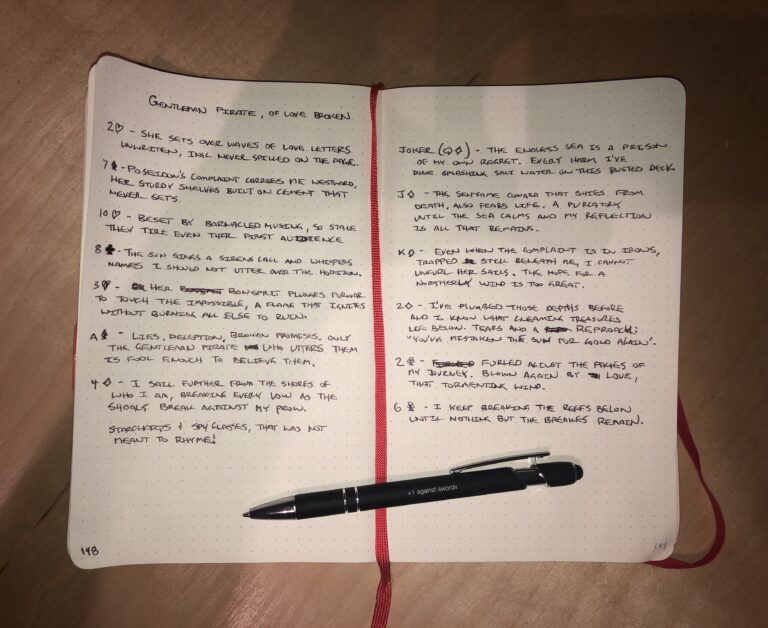 GENTLEMAN PIRATE, OF LOVE BROKEN
2♡ - SHE SETS OVER WAVES OF LOVE LETTERS
UNWRITEN, INK NEVER SPILLED ON THE PAGE.
7♠ - POSEIDON'S COMPLAINT CARRIES ME WESTWARD,
HER STURDY SHELVES BUILT ON CEMENT THAT
NEVER SETS.
10♡ - BESET BY BARNACLED MUSING, SO STALE
THEY TIRE EVEN THER FIRST AUDIENCE
8♣ - THE SUN SINGS A SIRENS CALL AND WHISPERS
NAMES I SHOULD NOT UTTER OVER THE HORIZON.
3♡ - HER BOWSPRIT PLUNGES FORWARD
TO TOUCH THE IMPOSSIBLE, A FLAME THAT IGNITES
WITHOUT BURNING ALL ELSE TO RUIN.
A♠ - LIES, DECEPTION, BROKEN PROMISES. ONLY
THE GENTLEMAN PIRATE WHO UTTERS THEM
IS FOOL ENOUGH TO BELIEVE THEM.
4♢ - I SAIL FURTHER FROM THE SHORES OF
WHO I AM, BREAKING EVERY VOW AS THE
SHOALS BREAK AGAINST MY PROW.
STARCHARTS & SPY GLASSES, THAT WAS NOT
MEANT TO RHYME!
148
JOKER (Q♢) - THE ENDLESS SEA IS A PRISON
OF MY OWN REGRET. EVERY HARM I'VE
DONE SPLASHING SALT WATER ON THIS BUSTED DECK.
J♢ - THE SELFSAME COWARD THAT SHIES FROM
DEATH, ALSO FEARS LIFE. A PURGATORY
UNTIL THE SEA CALMS AND MY REFLECTION
IS ALL THAT REMAINS.
K♢ - EVEN WHEN THE COMPLAINT IS IN IRONS,
TRAPPED STILL BENEATH ME, I CANNOT
UNFURL HER SAILS. THE HOPE FOR A
NORTHERLY WIND IS TOO GREAT.
2♢ - I'VE PLUMBED THOSE DEPTHS BEFORE
AND I KNOW WHAT GLEAMING TREASURES
LIE BELOW. TEARS AND A REPROACH:
"YOU'VE MISTAKEN THE SUN FOR GOLD AGAIN".
2♣ - FURLED ALIGHT THE PAGES OF
MY JOURNEY. BLOWN AGAIN BY LOVE,
THAT TORMENTING WIND.
6♣ - I KEEP BREAKING THE REEFS BELOW
UNTIL NOTHING BUT THE BREAKES REMAIN.
+1 against swords